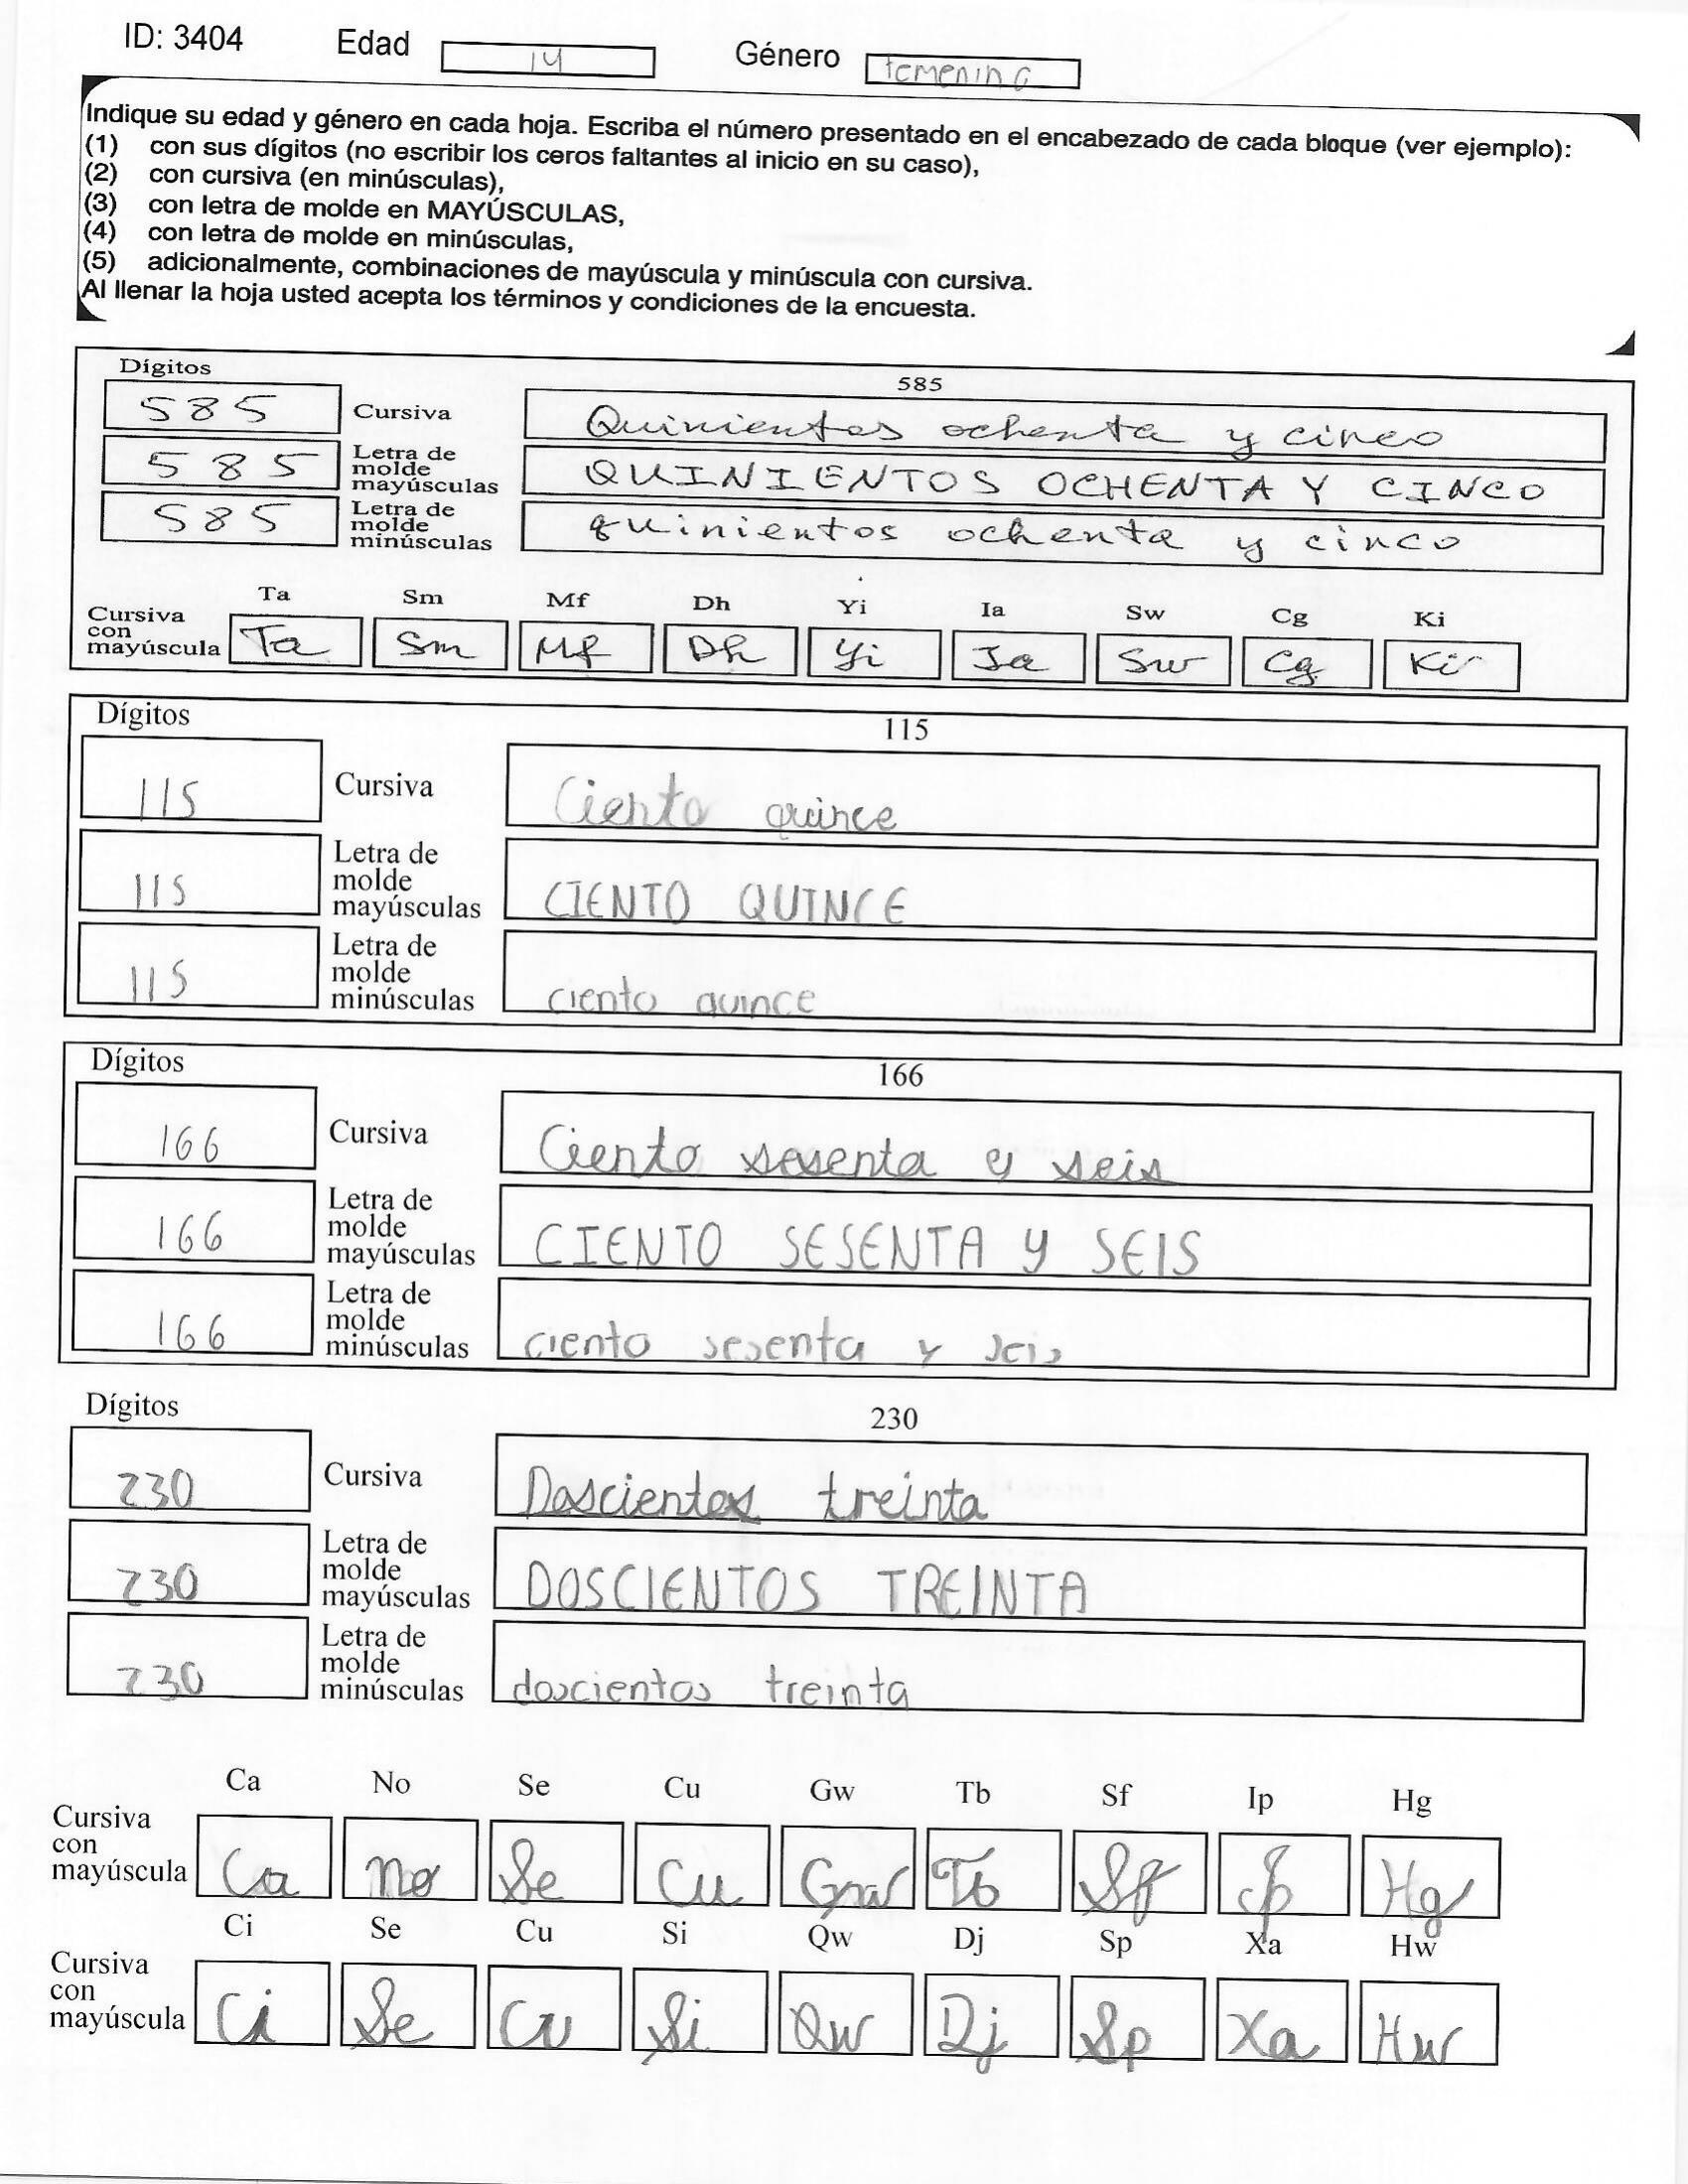 ID: 3404 Edad 14 Género femenino
Indique su edad y género en cada hoja. Escriba el número presentado en el encabezado de cada bloque (ver ejemplo):
(1) con sus dígitos (no escribir los ceros faltantes al inicio en su caso),
(2) con cursiva (en minúsculas),
(3) con letra de molde en MAYÚSCULAS,
(4) con letra de molde en minúsculas,
(5) adicionalmente, combinaciones de mayúscula y minúscula con cursiva.
Al llenar la hoja usted acepta los términos y condiciones de la encuesta.
Dígitos 585
585 Cursiva Quinientos ochenta y cinco
585 Letra de molde mayúsculas QUINIENTOS OCHENTA Y CINCO
585 Letra de molde minúsculas quinientos ochenta y cinco
Ta Sm Mf Dh Yi Ia Sw Cg Ki
Cursiva con mayúscula Ta Sm Mf Dh Yi Ia Sw Cg Ki
Dígitos 115
115 Cursiva Ciento quince
115 Letra de molde mayúsculas CIENTO QUINCE
115 Letra de molde minúsculas ciento quince
Dígitos 166
166 Cursiva Ciento sesenta y seis
166 Letra de molde mayúsculas CIENTO SESENTA Y SEIS
166 Letra de molde minúsculas ciento sesenta y seis
Dígitos 230
230 Cursiva Doscientos treinta
230 Letra de molde mayúsculas DOSCIENTOS TREINTA
230 Letra de molde minúsculas doscientos treinta
Ca No Se Cu Gw Tb Sf Ip Hg
Cursiva con mayúscula Ca No Se Cu Gw Tb Sf Ip Hg
Ci Se Cu Si Qw Dj Sp Xa Hw
Cursiva con mayúscula Ci Se Cu Si Qw Dj Sp Xa Hw